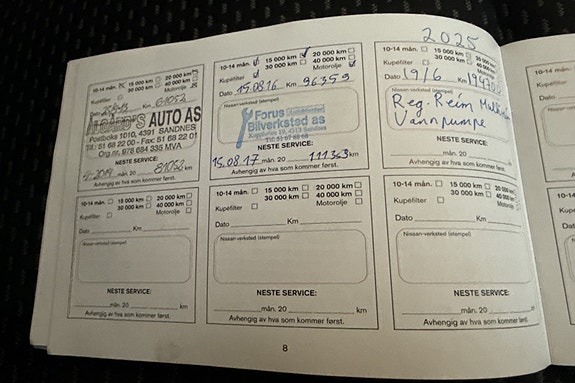 2025
10-14 mån. 15 000 km 20 000 km
30 000 km 40 000 km
Kupéfilter Motorolje
Dato Km 61052
AUTO AS
Postboks 1010, 4391 SANDNES
Tlf.: 51 68 22 00 - Fax: 51 68 22 01
Org.nr. 978 684 335 MVA
NESTE SERVICE:
81052 km
Avhengig av hva som kommer først.
10-14 mån. 15 000 km 20 000 km
30 000 km 40 000 km
Kupéfilter Motorolje
Dato 15.08.16 Km 96359
Nissan-verksted (stempel)
Forus
Bilverksted as
NESTE SERVICE:
15.08.17 mån. 20 111359 km
Avhengig av hva som kommer først.
10-14 mån. 15 000 km 20 000 km
30 000 km 40 000 km
Kupéfilter Motorolje
Dato 19/6 Km
Nissan-verksted (stempel)
Reg. Reim
Vannpumpe
NESTE SERVICE:
mån. 20 km
Avhengig av hva som kommer først.
10-14 mån. 15 000 km 20 000 km
30 000 km 40 000 km
Kupéfilter Motorolje
Dato Km
Nissan-verksted (stempel)
NESTE SERVICE:
mån. 20 km
Avhengig av hva som kommer først.
10-14 mån. 15 000 km 20 000 km
30 000 km 40 000 km
Kupéfilter Motorolje
Dato Km
Nissan-verksted (stempel)
NESTE SERVICE:
mån. 20 km
Avhengig av hva som kommer først.
10-14 mån. 15 000 km 20 000 km
30 000 km 40 000 km
Kupéfilter Motorolje
Dato Km
Nissan-verksted (stempel)
NESTE SERVICE:
mån. 20 km
Avhengig av hva som kommer først.
8